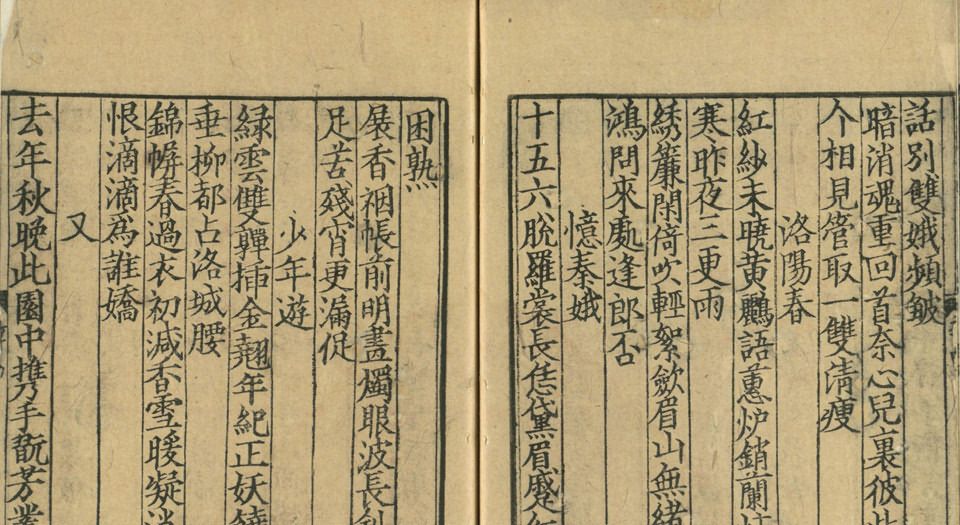 話別雙娥頻皺
暗消魂重回首奈心兒裏彼
个相見管取一雙清瘦
洛陽春
紅紗未曉黄鸝語蕙炉銷蘭
寒昨夜三更雨
綉簾閑倚吹輕絮斂眉山無緒
鴻問來處逢郎否
憶秦娥
十五六脫羅裳長恁黛眉蹙
困熟
展香裀帳前明畫燭眼波長
足苦殘宵更漏促
少年遊
緑雲雙嚲揷金翹年紀正妖饒
垂柳都占洛城腰
錦幈春過衣初減香雪暖凝消
恨滴滴為誰嬌
又
去年秋晚此園中携手翫芳叢